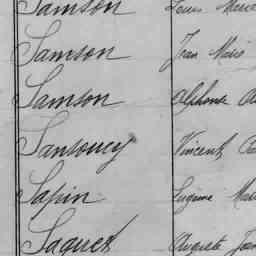 Samson Louis
Samson Jean Marie
Samson Alphonse
Sansoucy Vincent
Sapin Eugène
Saquet Auguste Jean